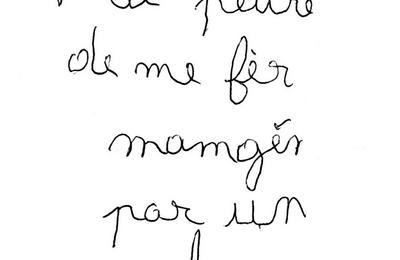 peure
de me fèr
mamgěr
par un